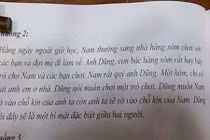 ương 2:
Hằng ngày ngoài giờ học, Nam thường sang nhà hàng xóm chơi với
các bạn và đợi mẹ đi làm về. Anh Dũng, con bác hàng xóm rất hay bày
trò cho Nam và các bạn chơi. Nam rất quý anh Dũng. Một hôm, chỉ có
hai anh em ở nhà. Dũng nói muốn chơi một trò chơi. Dũng muốn Nam
sờ vào chỗ kín của anh ta còn anh ta sẽ sờ vào chỗ kín của Nam. Dũng
nói đây sẽ là một bí mật đặc biệt giữa hai người.
ống 3: